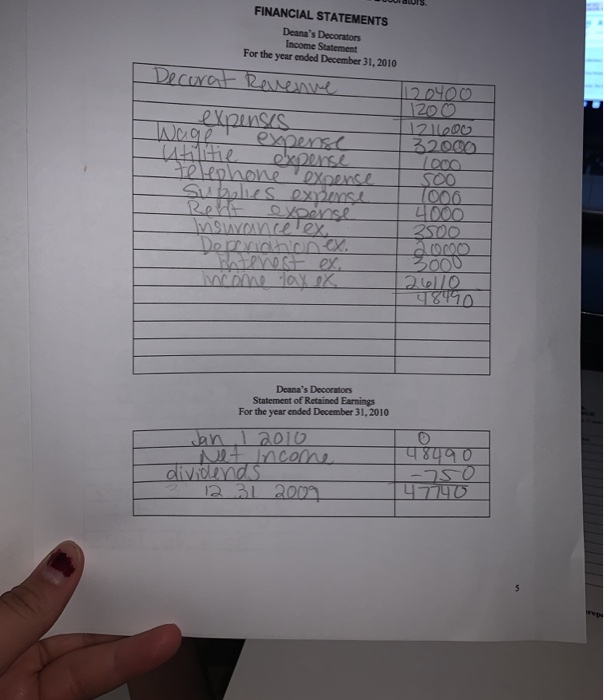 FINANCIAL STATEMENTS
Deana's Decorators
Income Statement
For the year ended December 31, 2010
Decorat Revenue 120400
1200
expenses 121600
Wage expense 32000
Utilitie expense 1000
telephone expense 500
Supplies expense 1000
Rent expense 4000
Insurance ex. 3500
ex.
Interest ex. 3000
income tax ex 26110
48490
Deana's Decorators
Statement of Retained Earnings
For the year ended December 31, 2010
Jan 1 2010 0
Net Income 48490
dividends -750
12 31 2009 47740
5